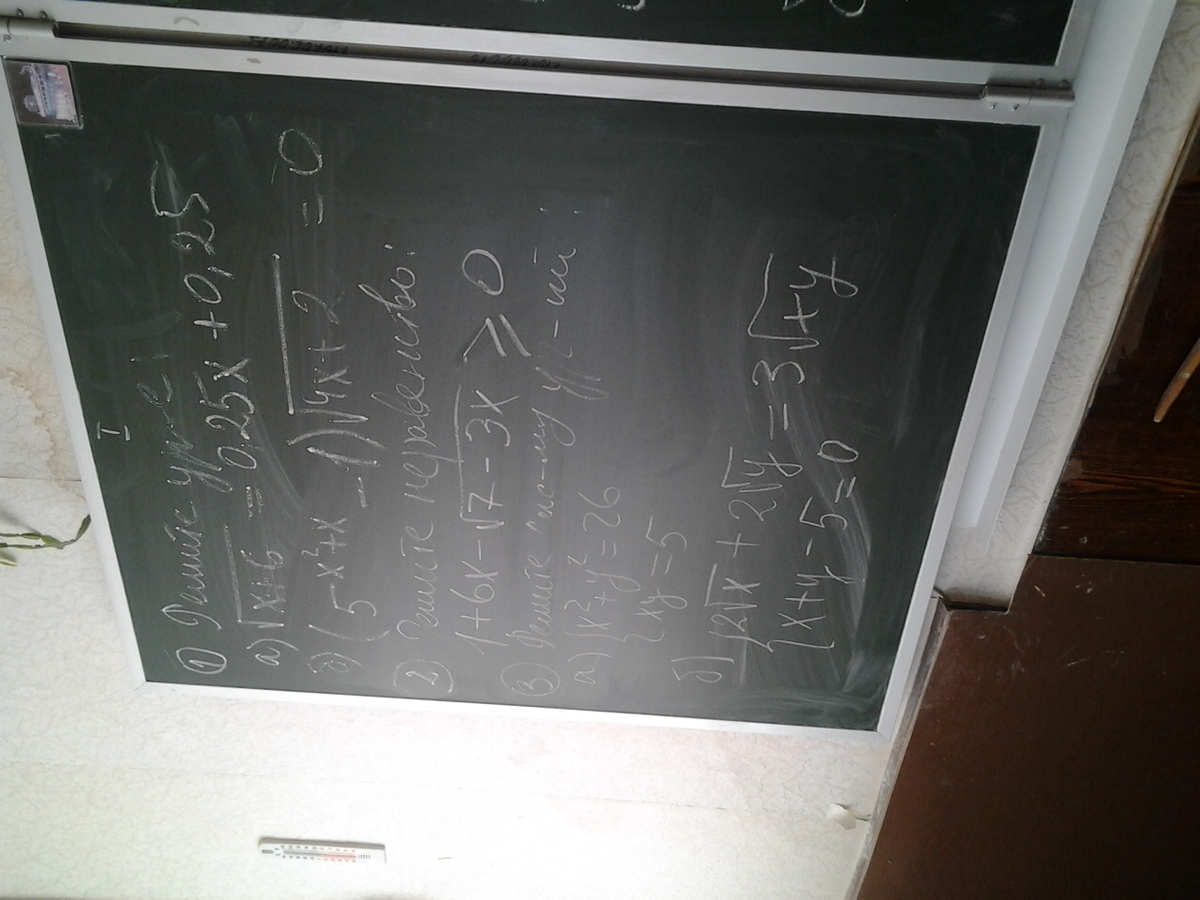 I
① Решите ур-е:
а) √x+6 = 0,25x + 0,25
б) (5^x²+x - 1)√4x+2 = 0
② Решите неравенство:
1+6x-√7-3x ≥ 0
③ Решите сис-му ур-ий:
а) {x²+y²=26
{xy=5
б) {2√x + 2√y = 3√x+y
{x+y-5=0